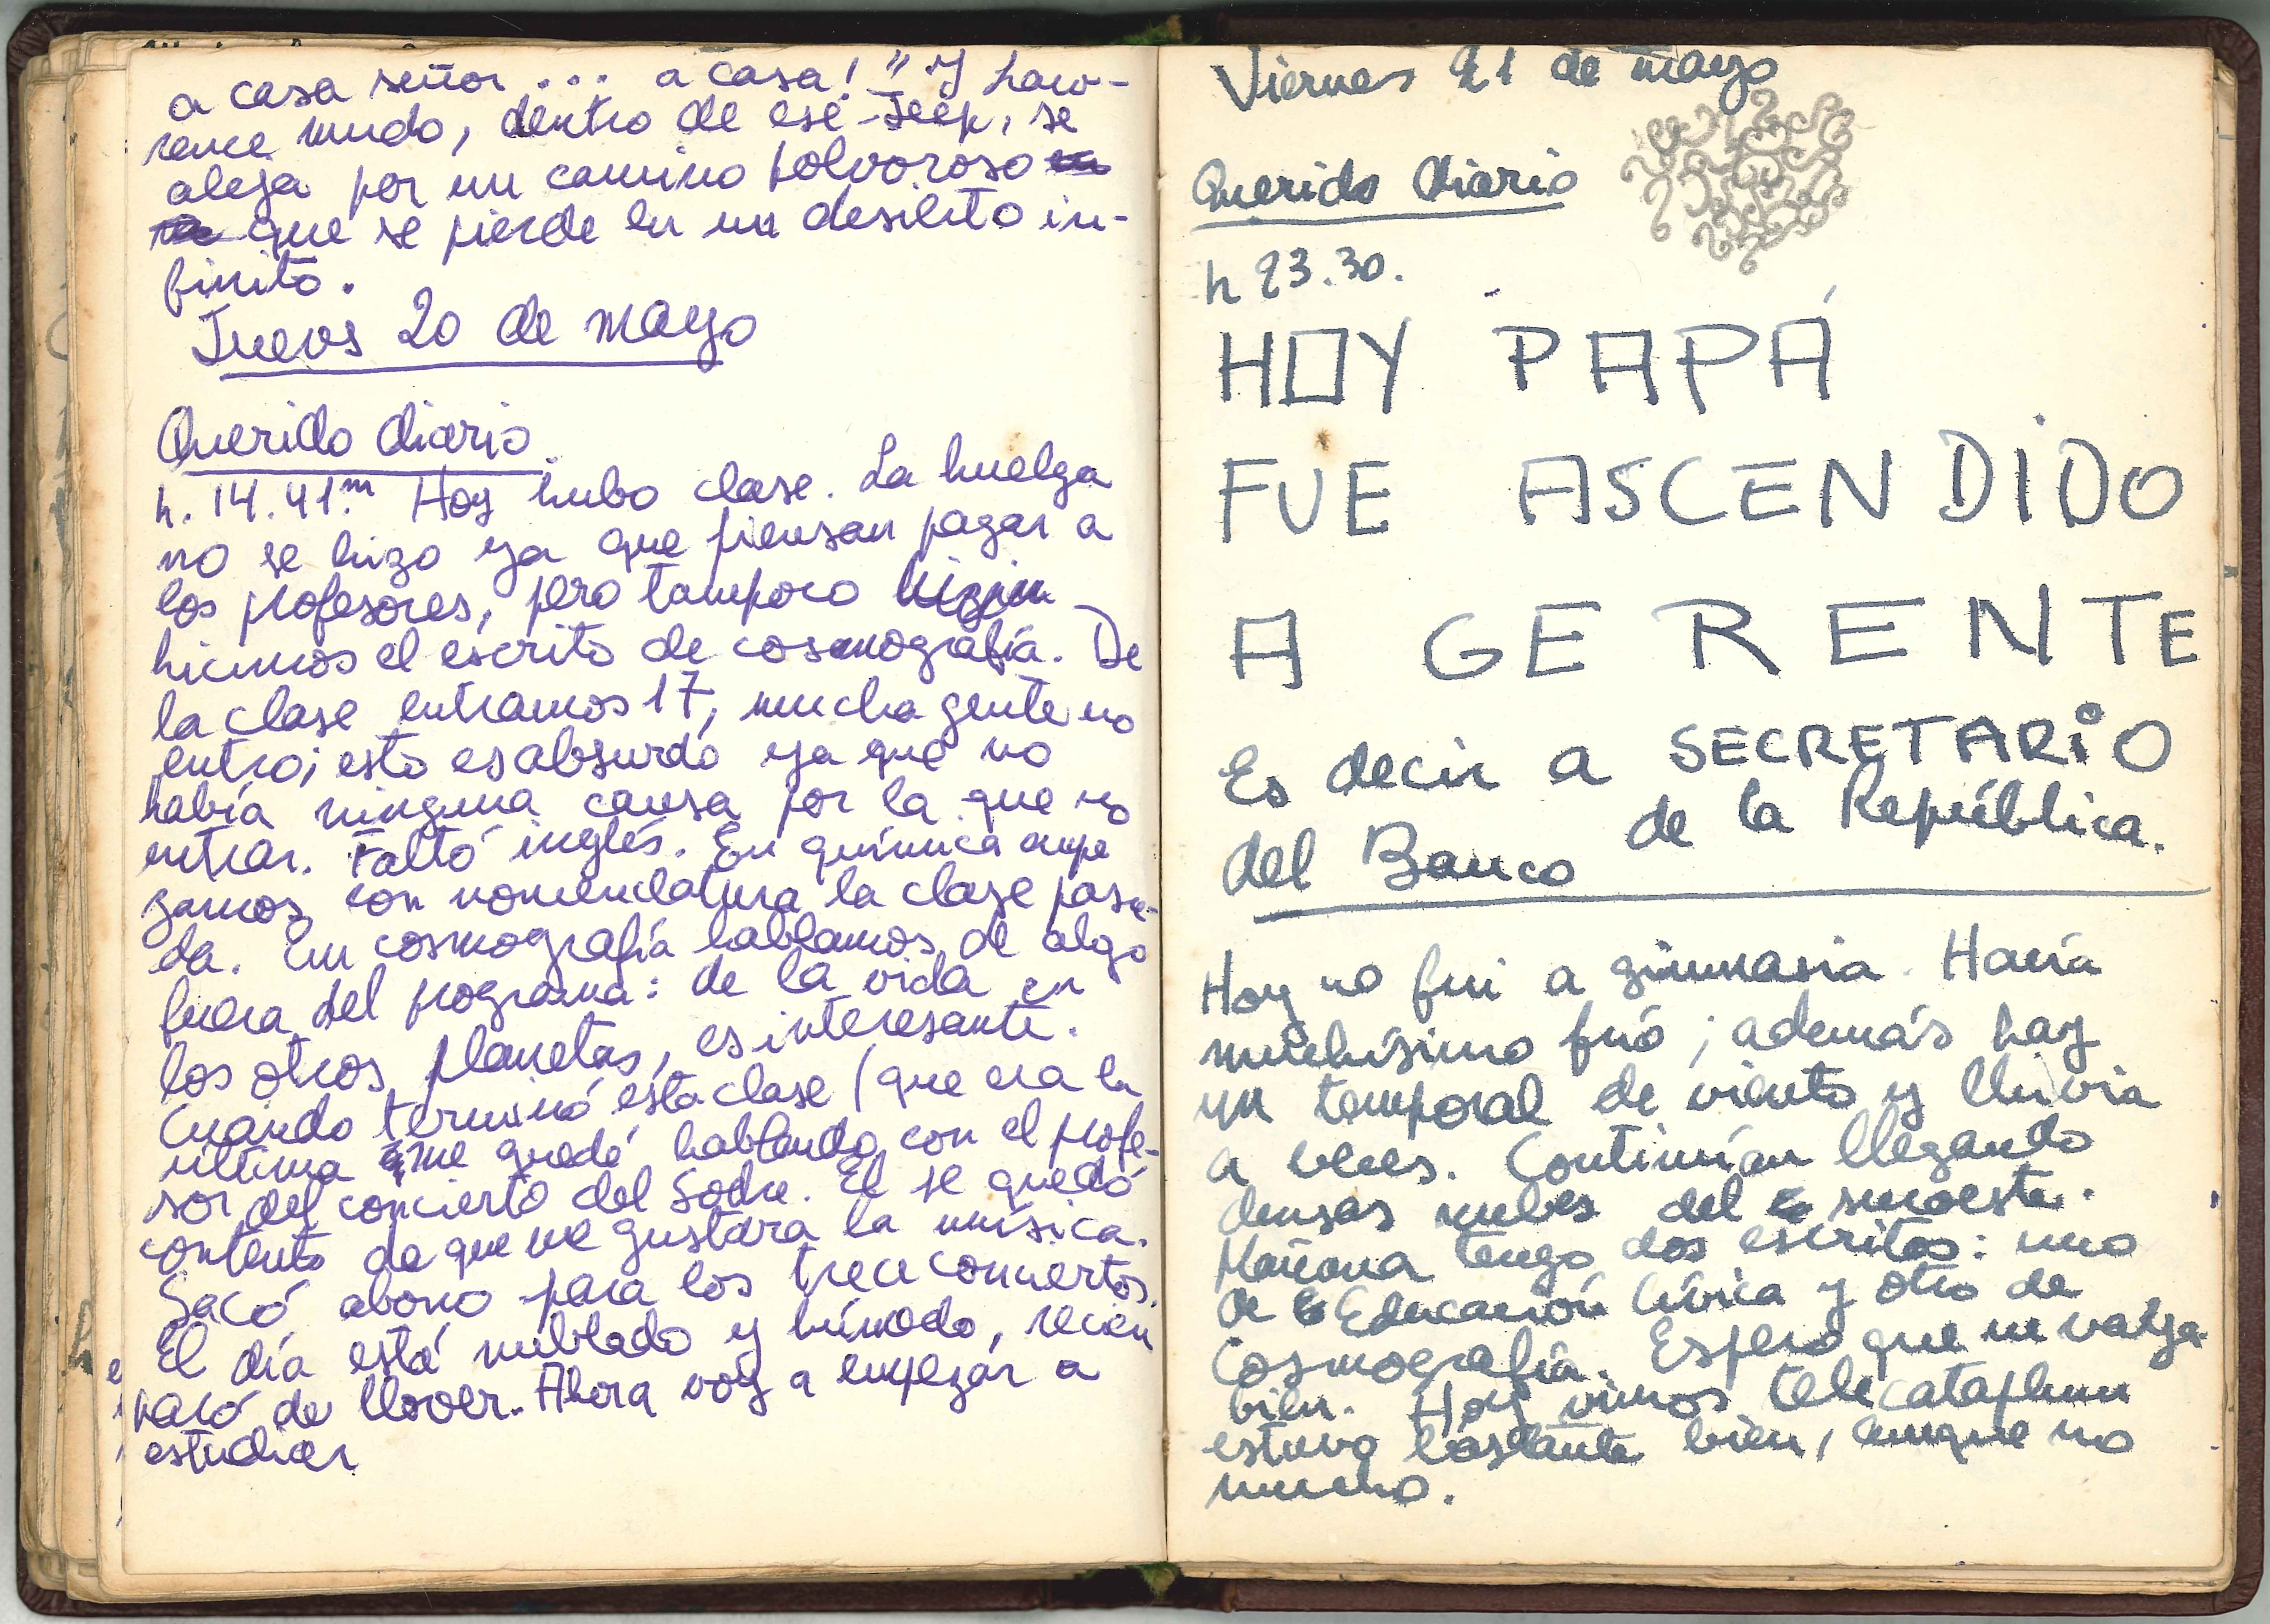 a casa señor... a casa!" Y Law-
rence mudo, dentro de ese Jeep, se
aleja por un camino polvoroso
que se pierde en un desierto in-
finito.
Jueves 20 de mayo
Querido diario.
h. 14.41.m Hoy hubo clase. La huelga
no se hizo ya que piensan pagar a
los profesores, pero tampoco
hicimos el escrito de cosmografía. De
la clase entramos 17, mucha gente no
entró; esto es absurdo ya que no
había ninguna causa por la que no
entrar. Faltó inglés. En química empe
zamos con nomenclatura la clase pasa-
da. En cosmografía hablamos de algo
fuera del programa: de la vida en
los otros planetas, es interesante.
Cuando terminó esta clase (que era la
última me quedé hablando con el profe-
sor del concierto del Sodre. El se quedó
contento de que me gustara la música.
Sacó abono para los trece conciertos.
El día está nublado y húmedo, recién
paró de llover. Ahora voy a empezar a
estudiar
Viernes 21 de mayo
Querido diario
h 23.30.
HOY PAPÁ
FUE ASCENDIDO
A GERENTE
Es decir a SECRETARIO
del Banco de la República.
Hoy no fui a gimnasia. Hacía
muchísimo frió; además hay
un temporal de viento y lluvia
a veces. Continúan llegando
densas nubes del suroeste.
Mañana tengo dos escritos: uno
de Educación Cívica y otro de
Cosmografía. Espero que me vaya
bien. Hoy vimos telecataplum
estuvo bastante bien, aunque no
mucho.